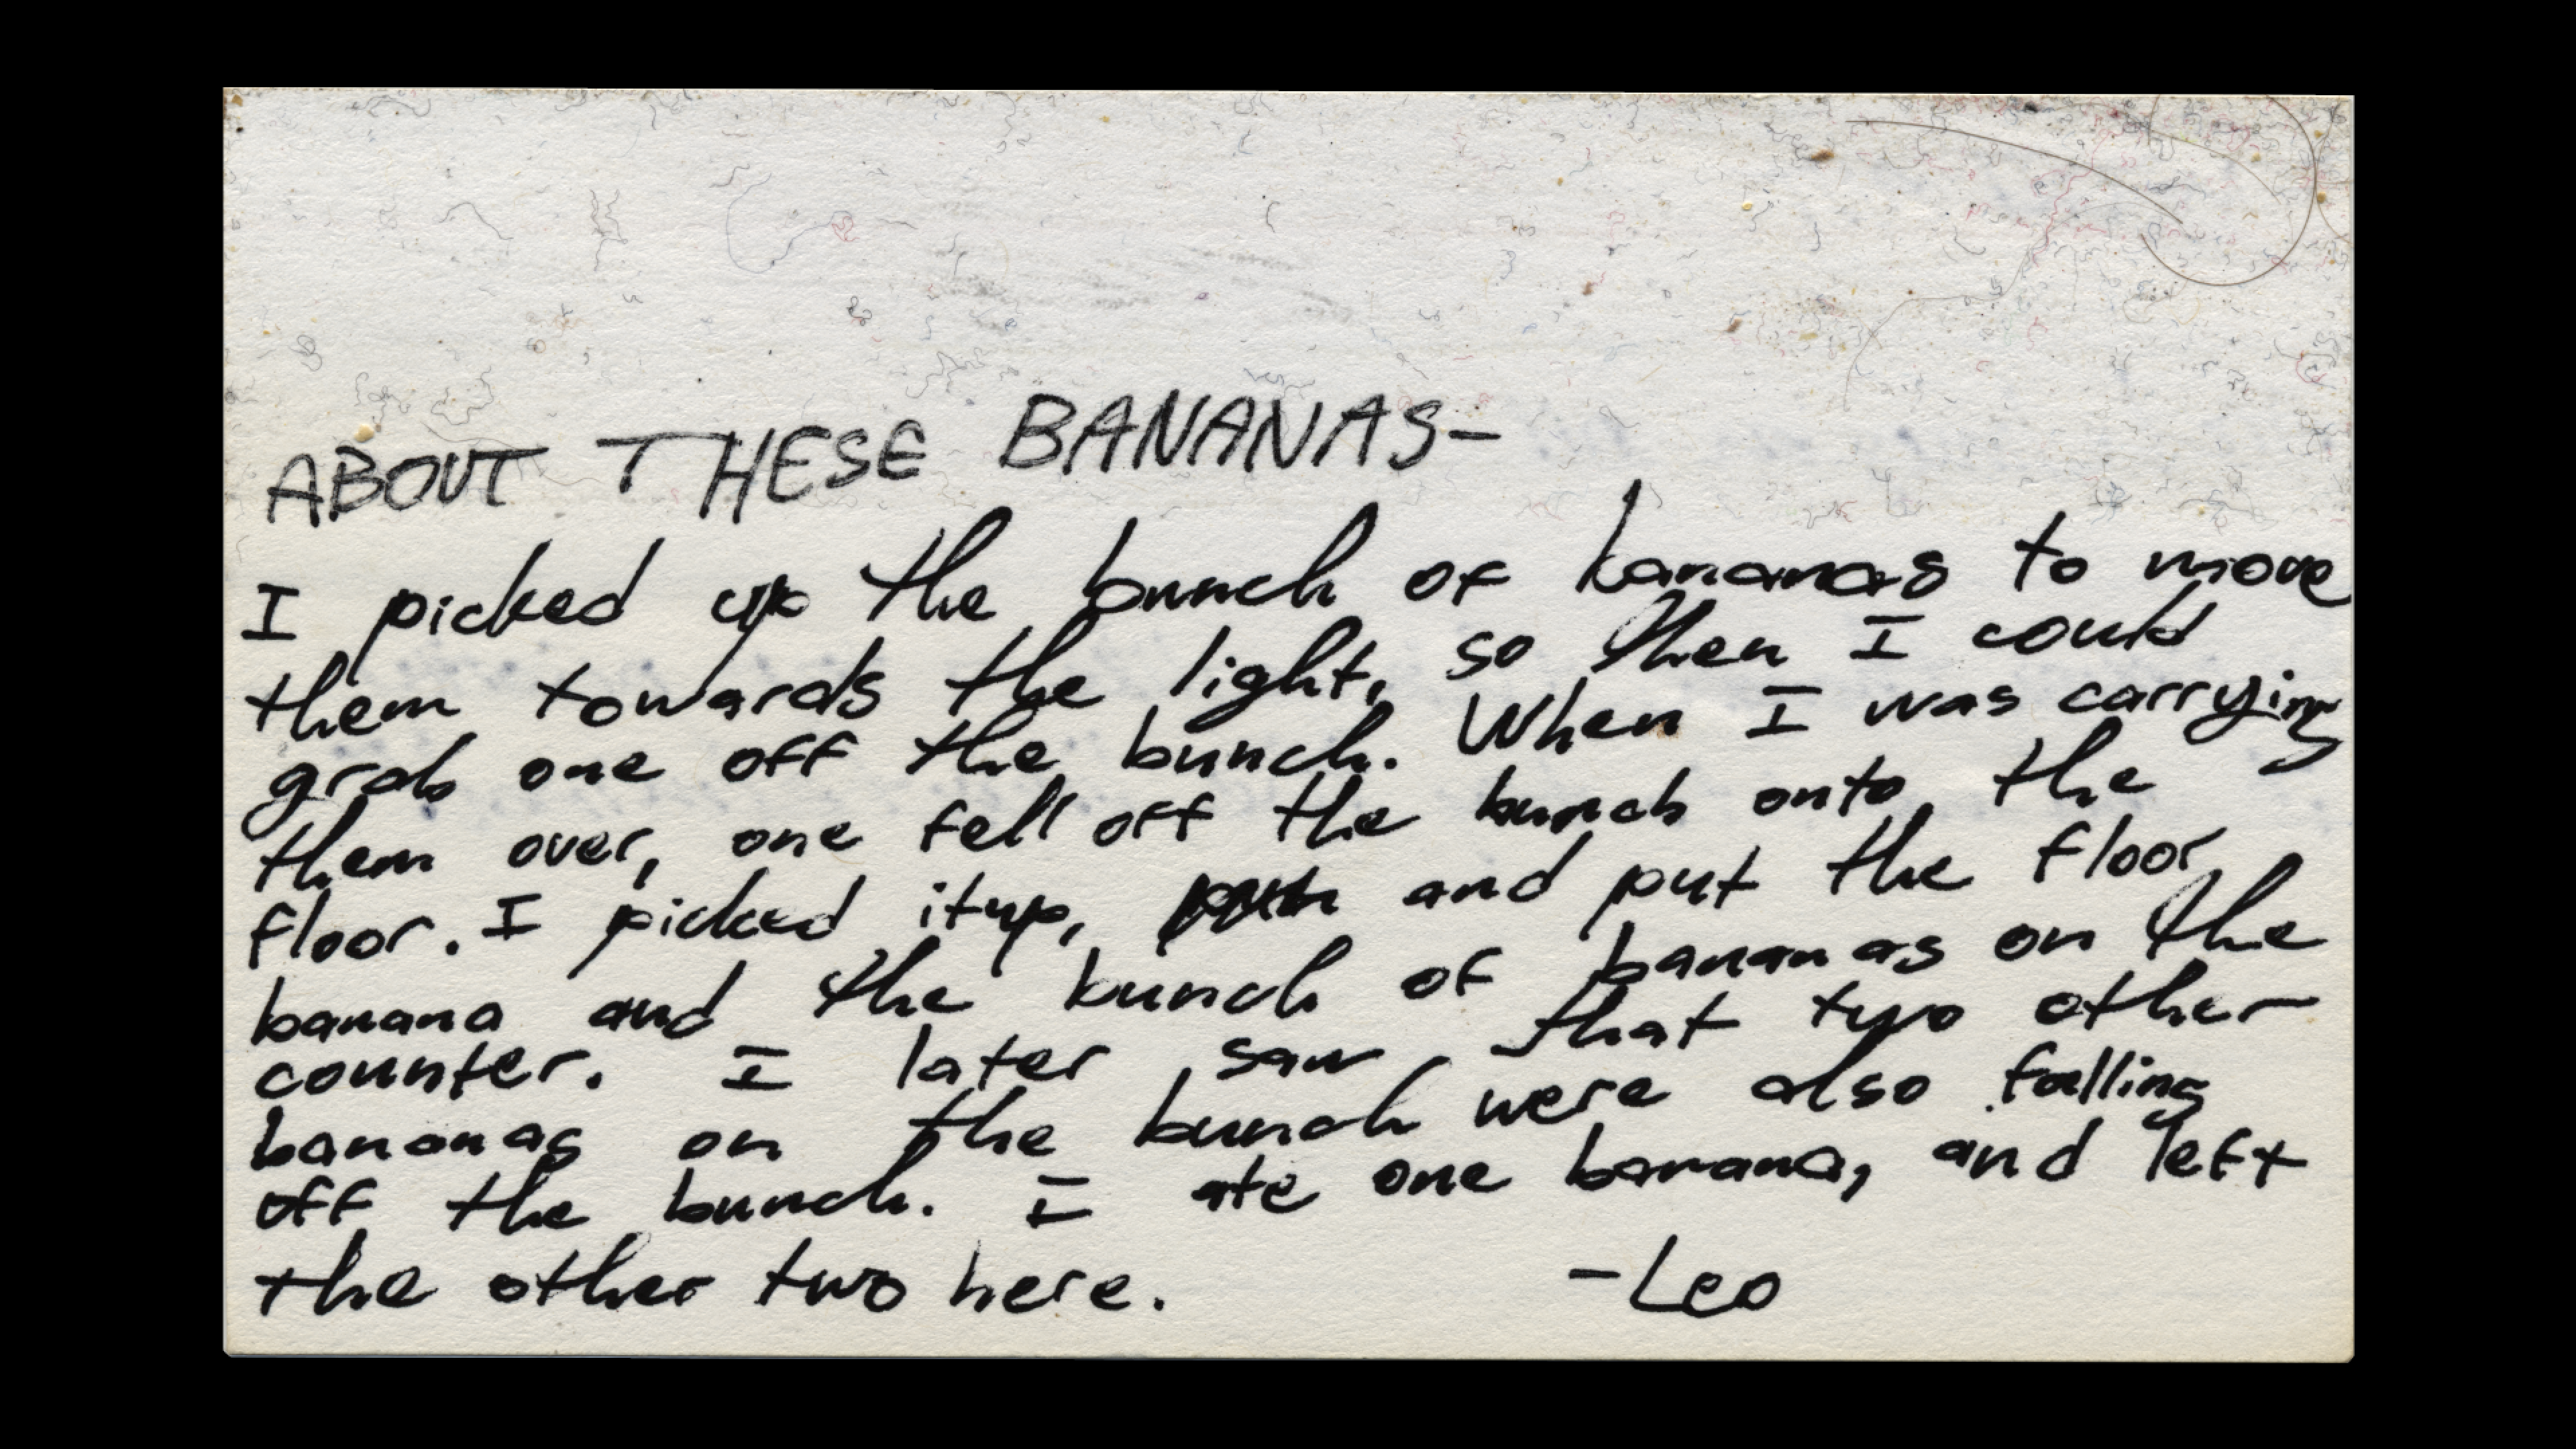 ABOUT THESE BANANAS-
I picked up the bunch of bananas to move
them towards the light, so then I could
grab one off the bunch. When I was carrying
them over, one fell off the bunch onto the
floor. I picked itup, and put the floor
banana and the bunch of bananas on the
counter. I later saw that two other
bananas on the bunch were also falling
off the bunch. I ate one banana, and left
the other two here. -Leo